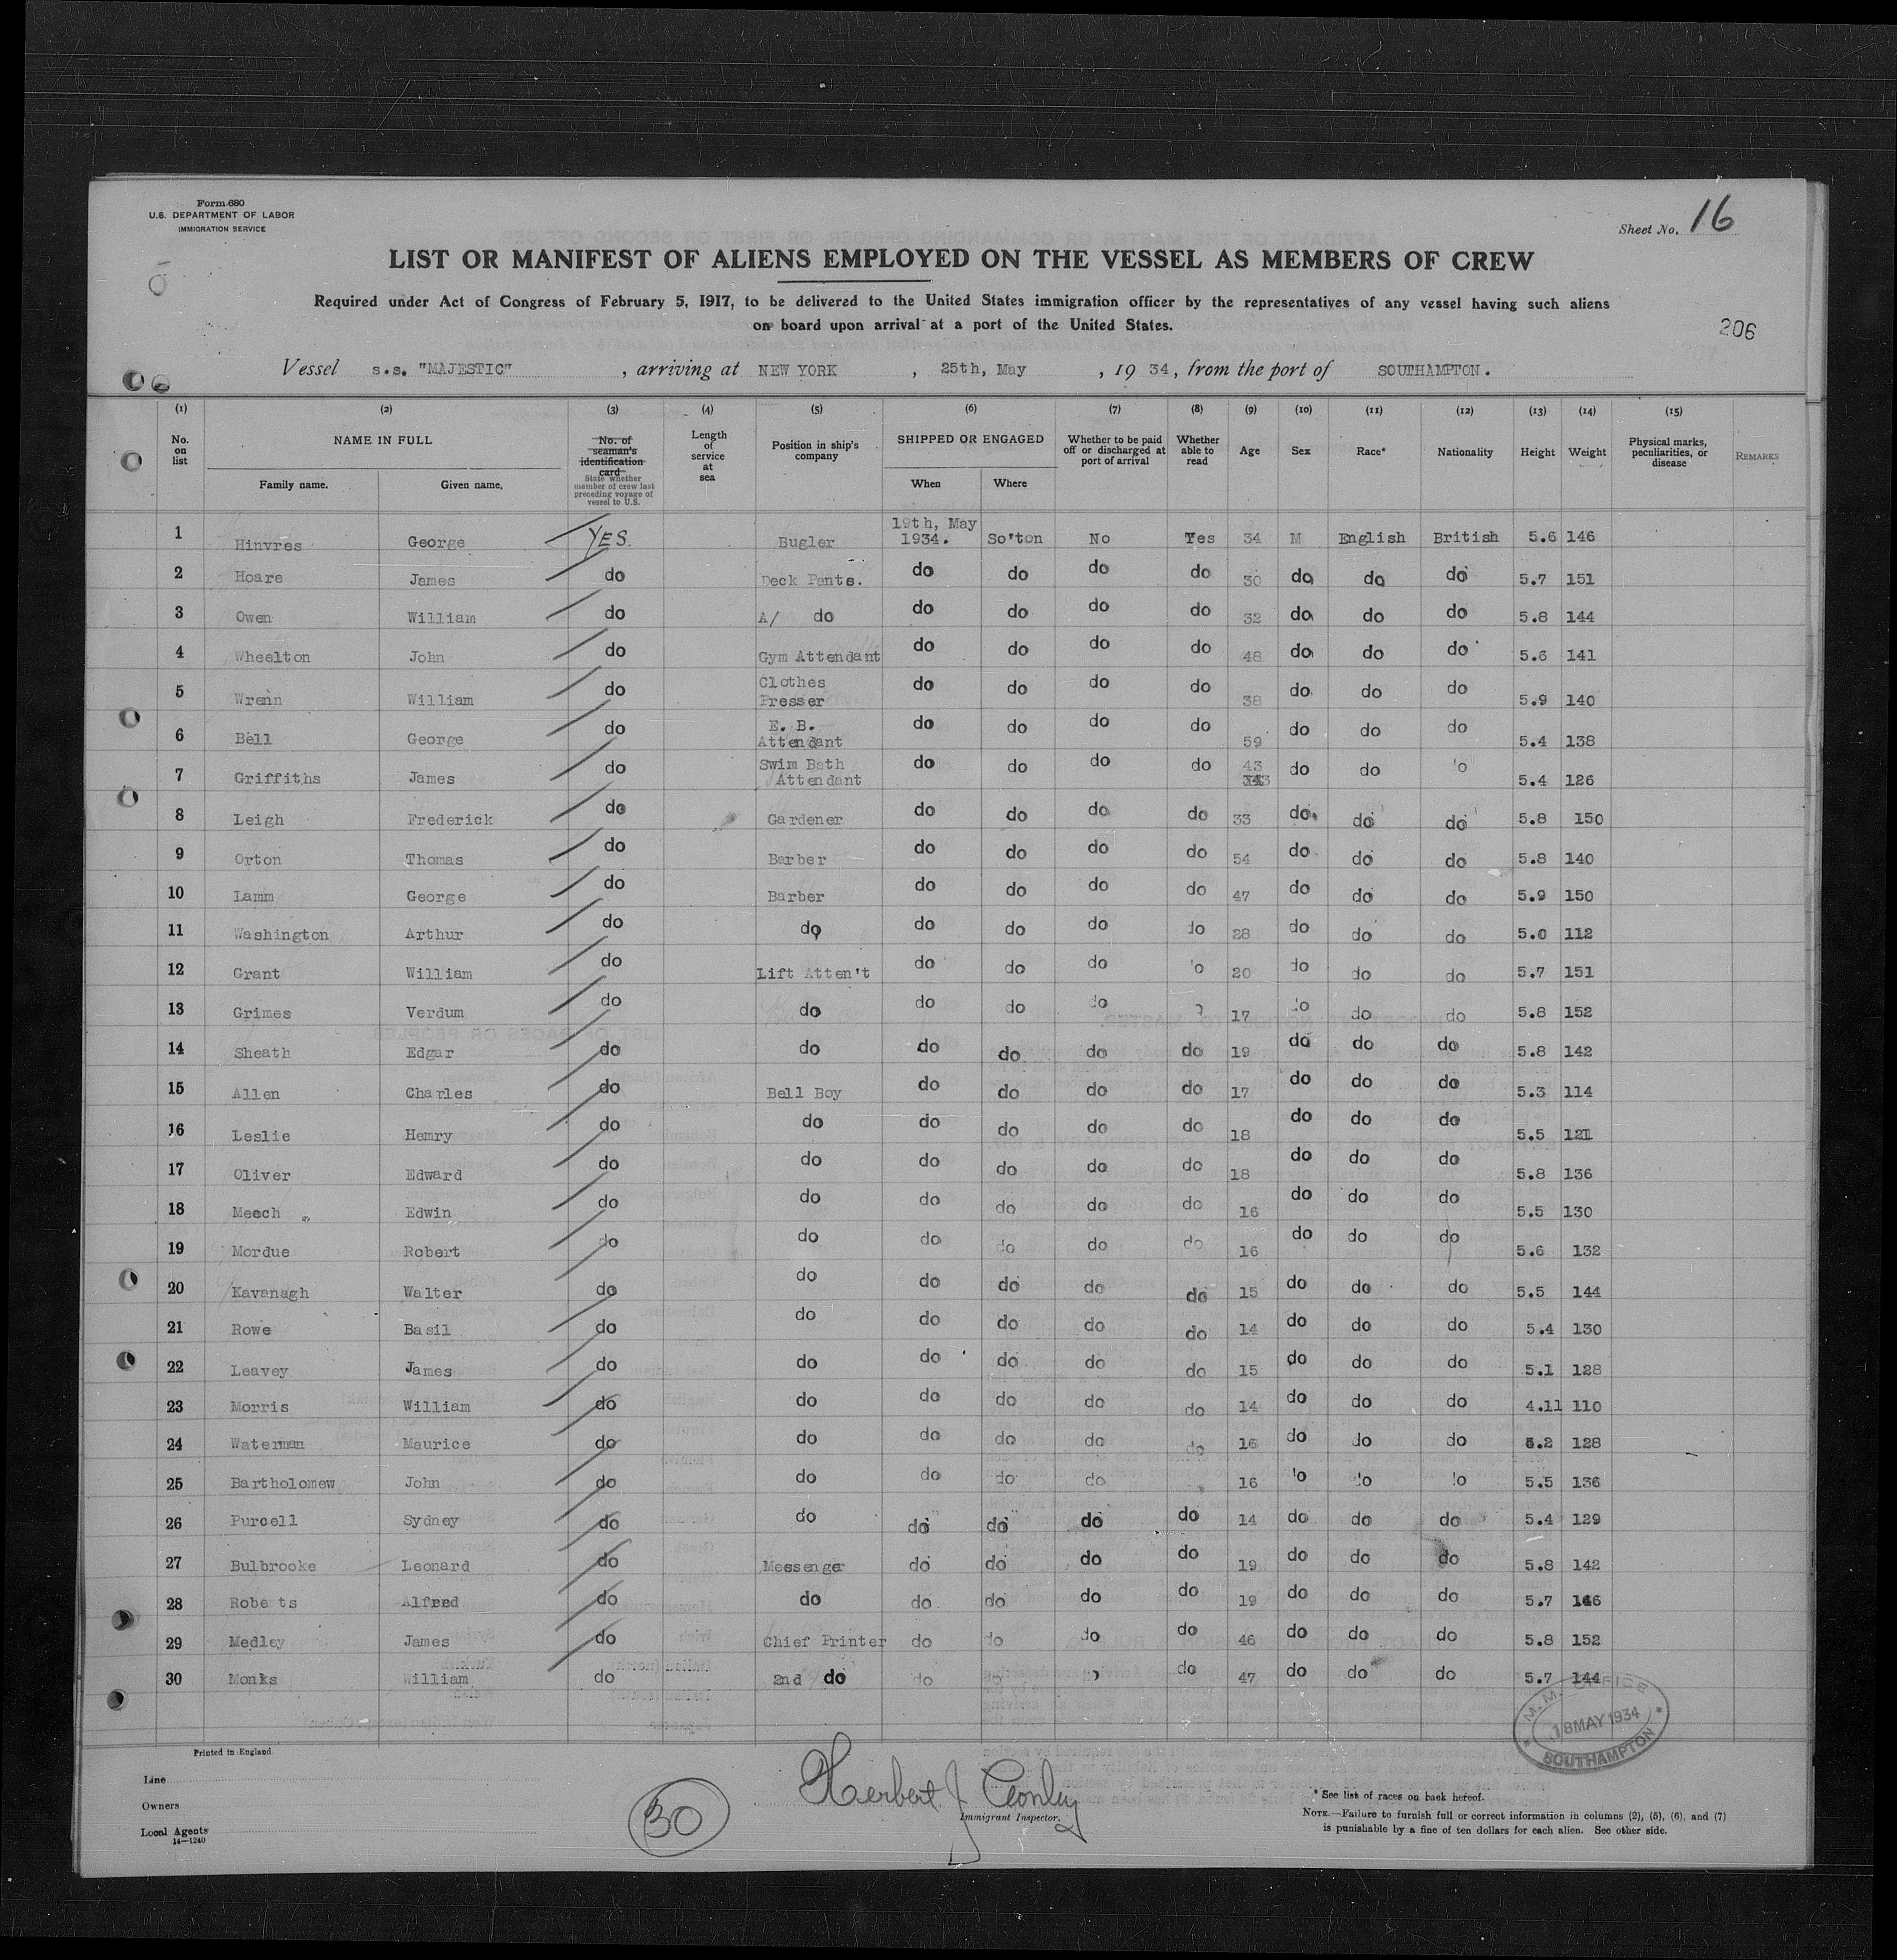 Form 680
U.S. DEPARTMENT OF LABOR
IMMIGRATION SERVICE
Sheet No. 16
LIST OR MANIFEST OF ALIENS EMPLOYED ON THE VESSEL AS MEMBERS OF CREW
Required under Act of Congress of February 5, 1917, to be delivered to the United States immigration officer by the representatives of any vessel having such aliens
on board upon arrival at a port of the United States.
206
Vessel s.s. "MAJESTIC", arriving at NEW YORK, 25th, May, 1934, from the port of SOUTHAMPTON.
(1) (2) (3) (4) (5) (6) (7) (8) (9) (10) (11) (12) (13) (14) (15)
No. on list NAME IN FULL No. of seaman's identification card State whether member of crew last preceding voyage of vessel to U.S. Length of service at sea Position in ship's company SHIPPED OR ENGAGED Whether to be paid off or discharged at port of arrival Whether able to read Age Sex Race* Nationality Height Weight Physical marks, peculiarities, or disease REMARKS
Family name. Given name. When Where
1 Hinvres George YES. Bugler 19th, May 1934. So'ton No Yes 34 M English British 5.6 146
2 Hoare James do Deck Pants. do do do do 30 do do do 5.7 151
3 Owen William do A/ do do do do do 32 do do do 5.8 144
4 Wheelton John do Gym Attendant do do do do 48 do do do 5.6 141
5 Wrenn William do Clothes Presser do do do do 38 do do do 5.9 140
6 Bell George do E. B. Attendant do do do do 59 do do do 5.4 138
7 Griffiths James do Swim Bath Attendant do do do do 43 do do do 5.4 126
8 Leigh Frederick do Gardener do do do do 33 do do do 5.8 150
9 Orton Thomas do Barber do do do do 54 do do do 5.8 140
10 Lamm George do Barber do do do do 47 do do do 5.9 150
11 Washington Arthur do do do do do do 28 do do do 5.0 112
12 Grant William do Lift Atten't do do do do 20 do do do 5.7 151
13 Grimes Verdum do do do do do 17 do do do 5.8 152
14 Sheath Edgar do do do do do do 19 do do do 5.8 142
15 Allen Charles do Bell Boy do do do do 17 do do do 5.3 114
16 Leslie Hemry do do do do do do 18 do do do 5.5 121
17 Oliver Edward do do do do do do 18 do do do 5.8 136
18 Meech Edwin do do do do do do 16 do do do 5.5 130
19 Mordue Robert do do do do do do 16 do do do 5.6 132
20 Kavanagh Walter do do do do do do 15 do do do 5.5 144
21 Rowe Basil do do do do do do 14 do do do 5.4 130
22 Leavey James do do do do do do 15 do do do 5.1 128
23 Morris William do do do do do do 14 do do do 4.11 110
24 Waterman Maurice do do do do do do 16 do do do 5.2 128
25 Bartholomew John do do do do do 16 do do do 5.5 136
26 Purcell Sydney do do do do do do 14 do do do 5.4 129
27 Bulbrooke Leonard do Messenge do do do do 19 do do do 5.8 142
28 Roberts Alfred do do do do do do 19 do do do 5.7 146
29 Medley James do Chief Printer do do do do 46 do do do 5.8 152
30 Monks William do 2nd do do do do 47 do do do 5.7 144
M.M. OFFICE
18 MAY 1934
SOUTHAMPTON
Printed in England.
Line
Owners
Local Agents
14—1240
30
Herbert J Conley
Immigrant Inspector.
* See list of races on back hereof.
NOTE.—Failure to furnish full or correct information in columns (2), (5), (6), and (7)
is punishable by a fine of ten dollars for each alien. See other side.